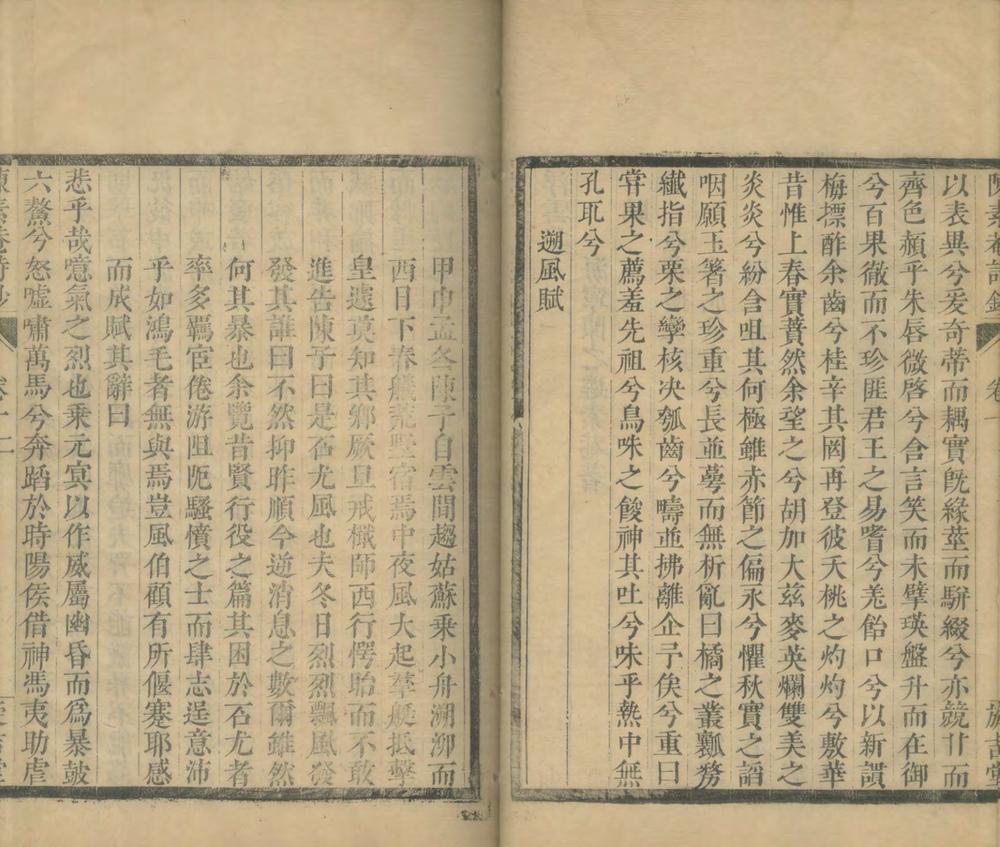 以表異兮爰奇蒂而耦實旣緣莖而駢綴兮亦競甘而
齊色頳乎朱唇微啓兮含言笑而未擘瑛盤升而在御
兮百果徹而不珍匪君王之易嗜兮羌飴口兮以新讃
梅摽酢余齒兮桂辛其罔再登彼夭桃之灼灼兮敷華
昔惟上春實蕡然余望之兮胡加大玆麥英爛雙美之
炎炎兮紛含咀其何極雖赤節之偏永兮懼秋實之謟
咽願玉箸之珍重兮長並蕚而無析亂曰橘之叢瓤務
纎指兮栗之孿核决瓠齒兮疇並拂離企予俟兮重曰
甞果之薦羞先祖兮鳥咮之餕神其吐兮味乎熱中無
孔耴兮
遡風賦
甲申孟冬陳子自雲間趨姑蘇乗小舟溯泖而
西日下舂艤荒墅宿焉中夜風大起羣艇抵擊
皇遽莫知其鄉厥旦戒檝師西行愕眙而不敢
進告陳子曰是石尤風也夫冬日烈烈飄風發
發其誰曰不然抑昨順今逆消息之數爾雖然
何其暴也余覽昔賢行役之篇其困於石尤者
率多羈宦倦游阻阨騷憤之士而肆志逞意沛
乎如鴻毛者無與焉豈風伯顧有所偃蹇耶感
而成賦其辭曰
悲乎哉噫氣之烈也乗元㝠以作威屬幽昏而爲暴皷
六鰲兮怒噓嘯萬馬兮奔蹈於時陽侯借神馮夷助虐
卷十二